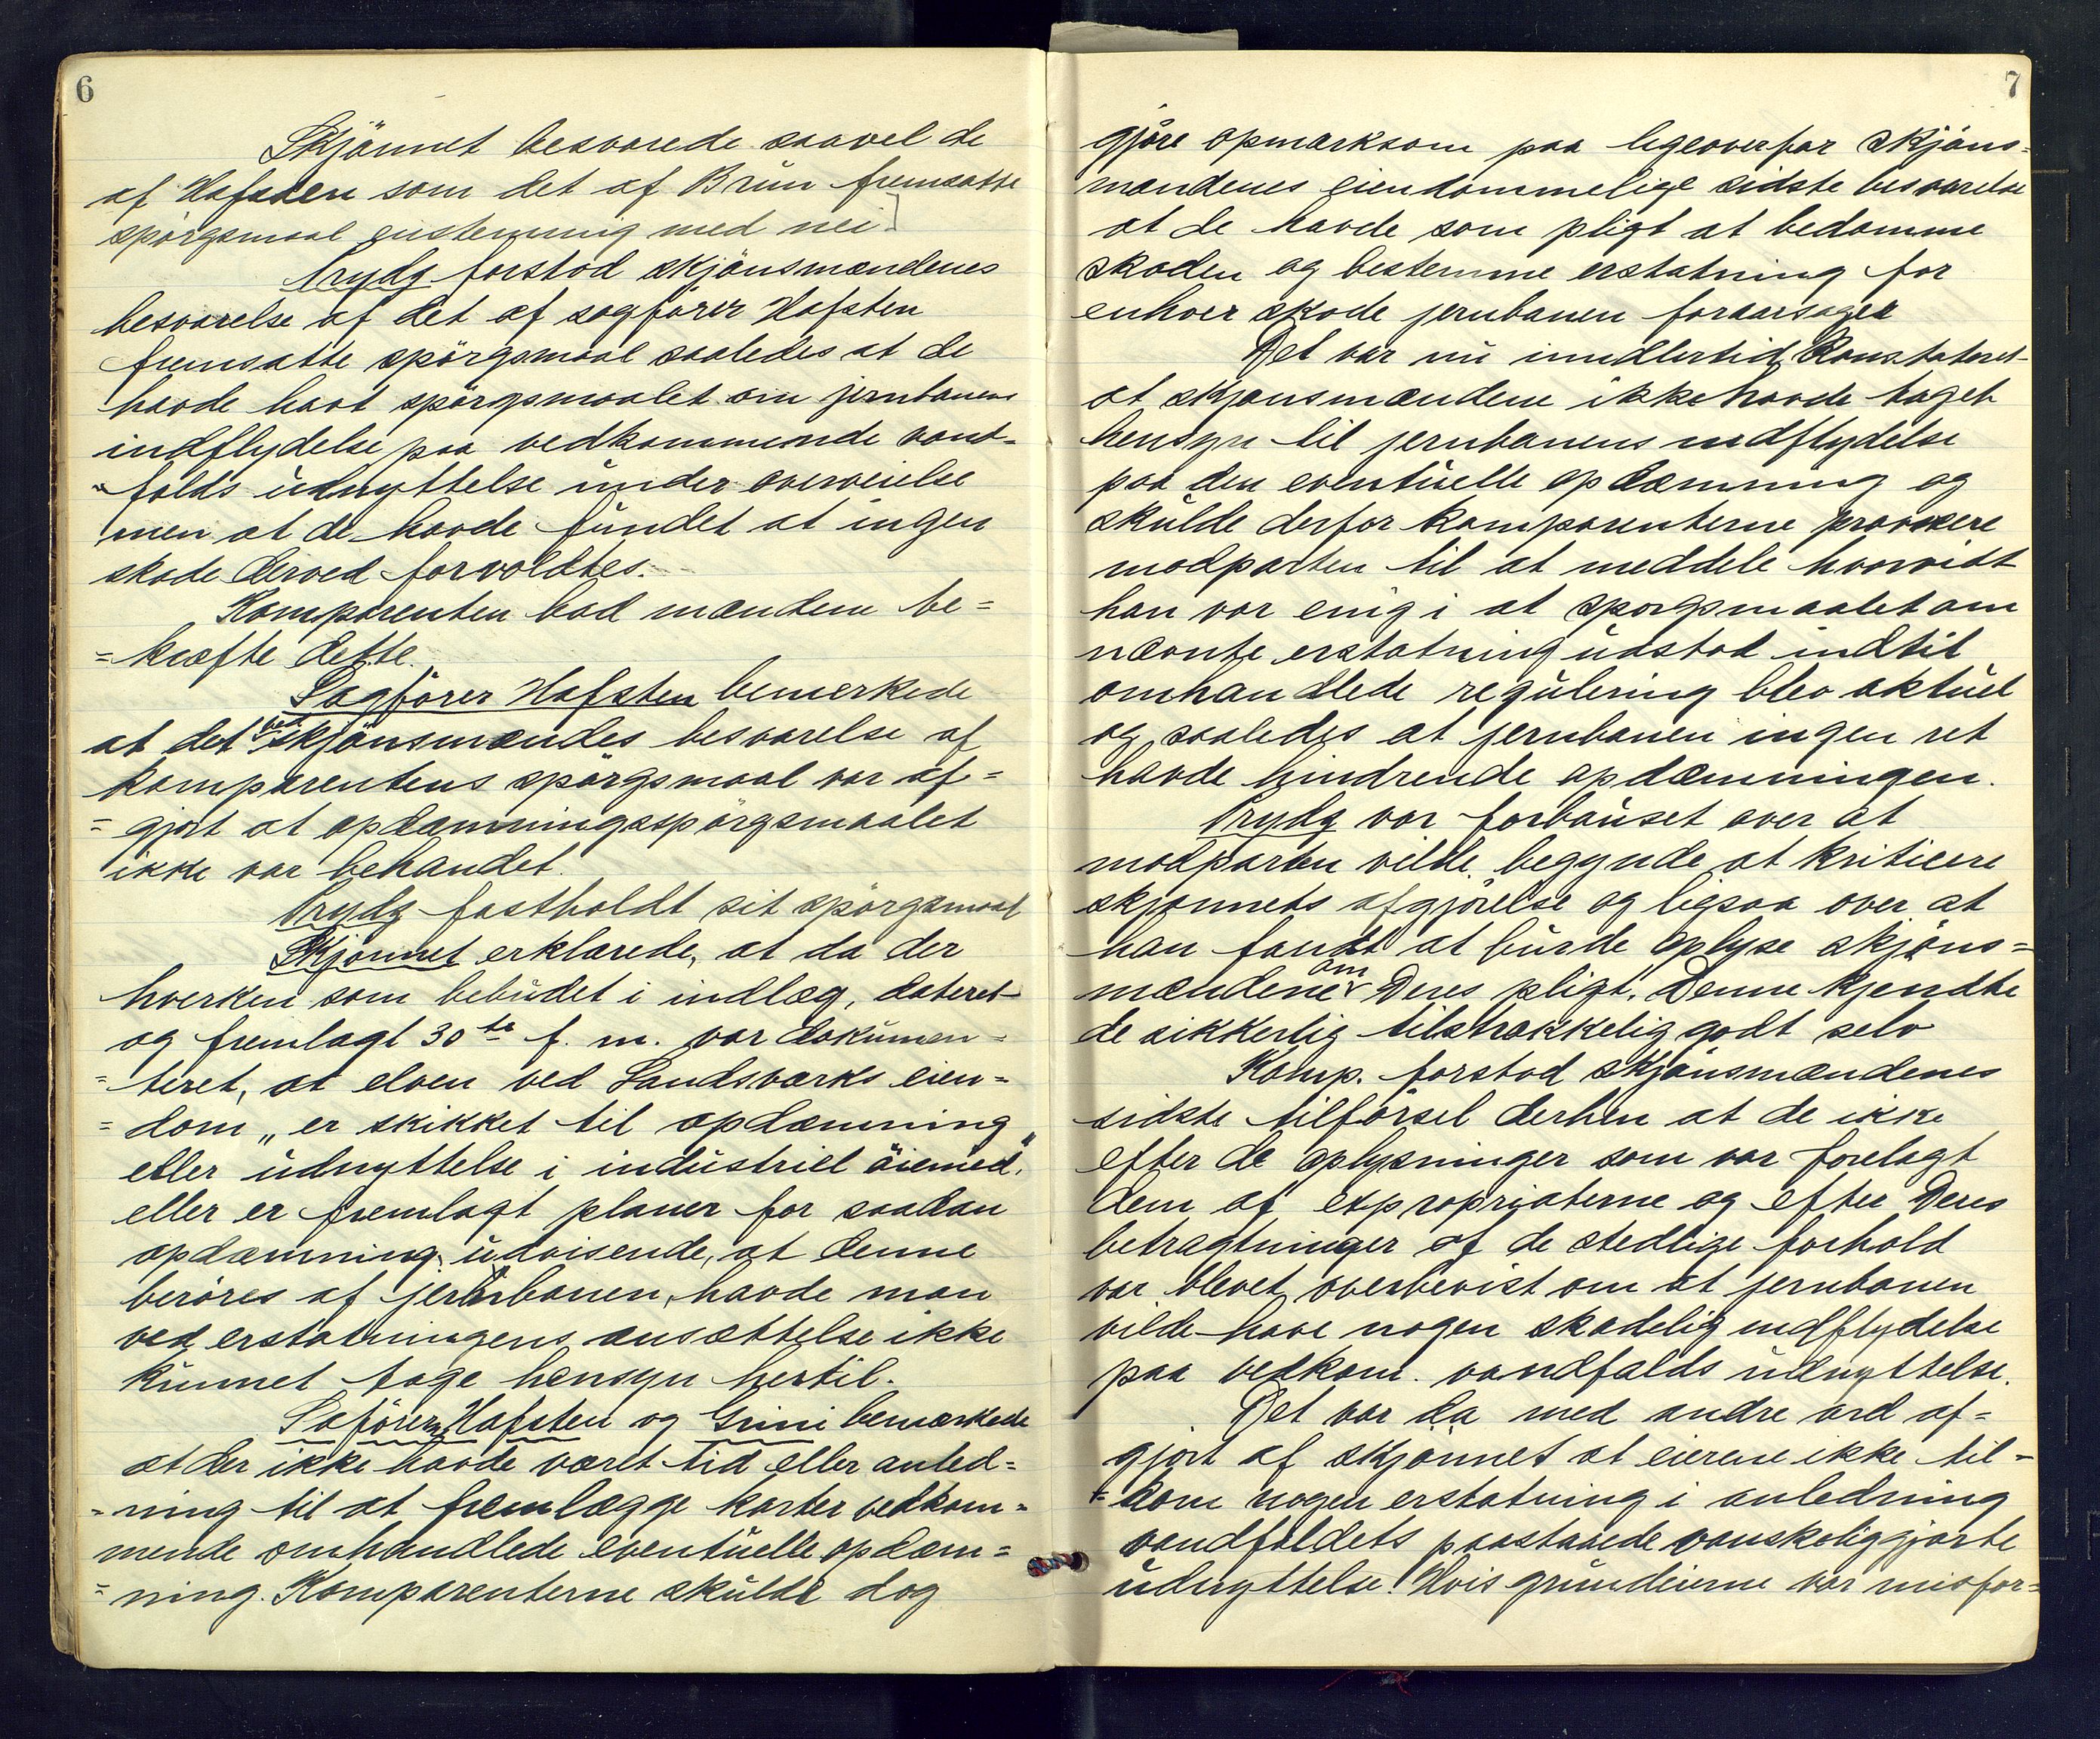 6
Skjönnet besvarede saavel de
af Hafsten som det af Brun fremsatte
spörgsmaal enstemmig med nei.]
Trydg forstod skjönsmændenes
besvarelse af det af sagförer Hafsten
fremsatte spörgsmaal saaledes at de
havde havt spörgsmaalet om jernbanens
indflydelse paa vedkommende vand-
falds udnyttelse under overveielse
men at de havde fundet at ingen
skade derved forvoldtes.
Komparenten bad mændene be=
=kræfte dette.
Sagförer Hafsten bemerkede
at det ved skjönsmændes besvarelse af
komparentens spörgsmaal var af=
=gjort at opdæmningsspörgsmaalet
ikke var behandet.
Trydg fastholdt sit spörgsmaal
Skjönnet erklarede, at da der
hverken som bebudet i indlæg, dateret
og fremlagt 30te f. m. var dokumen=
=teret, at elven ved Landsværks eien=
=dom „er skikket til opdæmning
eller udnyttelse i industriel öiemed",
eller er fremlagt planer for saadan
opdæmning udvisende, at denne
beröres af jernbanen, havde man
ved erstatningens ansættelse ikke
kunnet tage hensyn hertil.
Saförerne Hafsten og Grini bemærkede
at der ikke havde været tid eller anled=
=ning til at fremlægge karter vedkom=
mende omhandlede eventuelle opdæm=
=ning. Komparenterne skulde dog
7
gjöre opmærksom paa ligeoverfor skjöns=
mændenes eiendommelige sidste besvarelse
at de havde som pligt at bedømme
skaden og bestemme erstatning for
enhver skade jernbanen foraarsager
Det var nu imidlertid konstateret
at skjønsmændene ikke havde taget
hensyn til jernbanens indflydelse
paa den eventuelle opdæmning og
skulde derfor komparenterne provosere
modparten til at meddele hvorvidt
han var enig i at spørgsmaalet om
nævnte erstatning udstod indtil
omhandlede regulering blev aktuel
og saaledes at jernbanen ingen ret
havde hindrende opdæmningen.
Trydg var forbauset over at
modparten vilde begynde at kritisere
skjønnets afgjörelse og ligsaa over at
han fandt at burde oplyse skjöns=
mændene om Deres pligt. Denne kjendte
de sikkerlig tilstrækkelig godt selv
Komp. forstod skjönsmændenes
sidste tilförsel derhen at de ikke
efter de oplysninger som var forelagt
dem af expropriaterne og efter Deres
betragtninger af de stedlige forhold
var blevet overbevist om at jernbanen
vilde have nogen skadelig indflydelse
paa vedkom. vandfalds udnyttelse.
Det var da med andre ord af=
gjort af skjönnet at eierene ikke til=
=kom nogen erstatning i anledning
vandfaldets paastaaede vanskeliggjorte
udnyttelse. Hvis grundeierne var misfor=